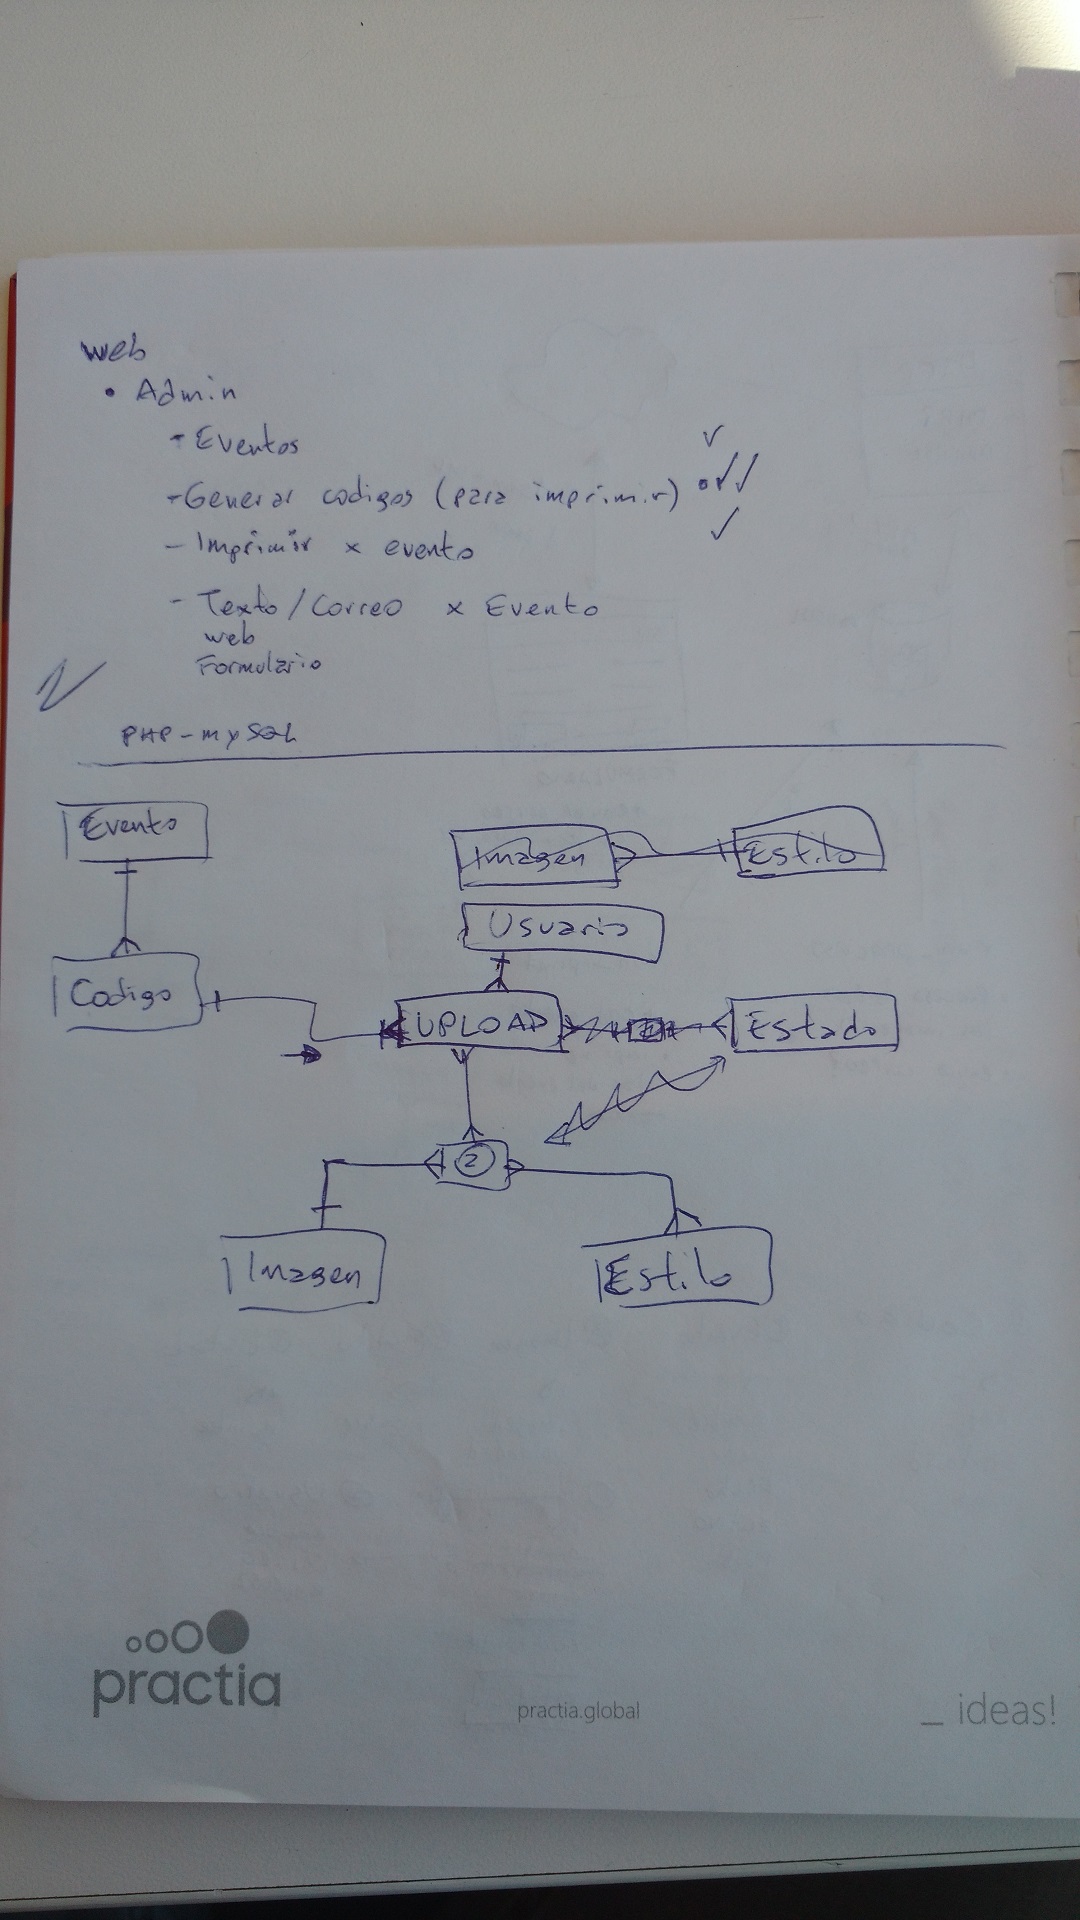 web
• Admin
- Eventos
- Generar codigos (para imprimir)
- Imprimir x evento
- Texto/Correo x Evento
web
Formulario
PHP-mySQL
Evento
Imagen
Estilo
Usuario
Codigo
UPLOAD
Estado
2
Imagen
Estilo
practia
practia.global
_ ideas!